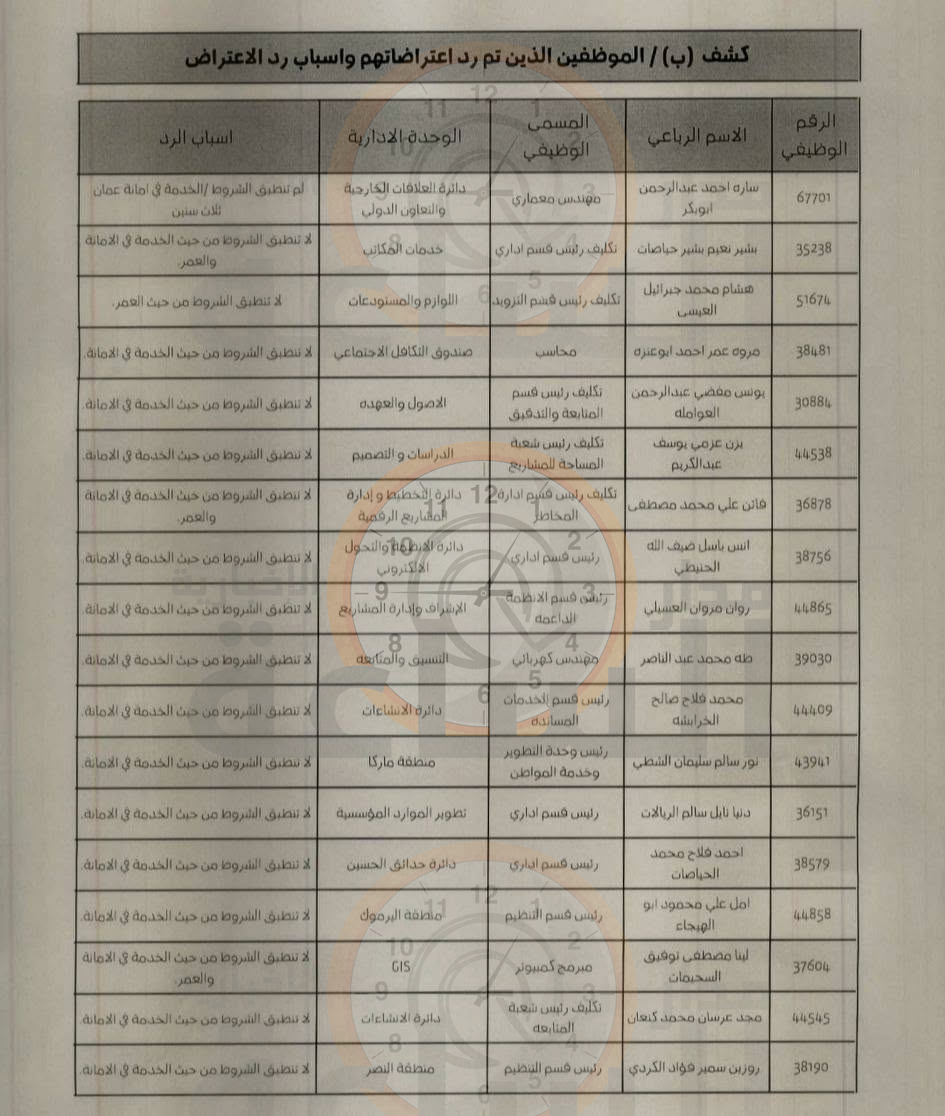 كشف (ب) / الموظفين الذين تم رد اعتراضاتهم واسباب رد الاعتراض
الرقم الوظيفي | الاسم الرباعي | المسمى الوظيفي | الوحدة الادارية | اسباب الرد
67701 | ساره احمد عبدالرحمن ابوبكر | مهندس معماري | دائرة العلاقات الخارجية والتعاون الدولي | لم تنطبق الشروط /الخدمة في امانة عمان ثلاث سنين
35238 | بشير نعيم بشير حياصات | تكليف رئيس قسم اداري | خدمات المكاتب | لا تنطبق الشروط من حيث الخدمة في الامانة والعمر.
51674 | هشام محمد جبرائيل العيسى | تكليف رئيس قسم التزويد | اللوازم والمستودعات | لا تنطبق الشروط من حيث العمر.
38481 | مروه عمر احمد ابوعنزه | محاسب | صندوق التكافل الاجتماعي | لا تنطبق الشروط من حيث الخدمة في الامانة.
30884 | يونس مفضي عبدالرحمن العوامله | تكليف رئيس قسم المتابعة والتدقيق | الاصول والعهده | لا تنطبق الشروط من حيث الخدمة في الامانة.
44538 | يزن عزمي يوسف عبدالكريم | تكليف رئيس شعبة المساحة للمشاريع | الدراسات و التصميم | لا تنطبق الشروط من حيث الخدمة في الامانة.
36878 | فاتن علي محمد مصطفى | تكليف رئيس قسم ادارة المخاطر | دائرة التخطيط و إدارة المشاريع الرقمية | لا تنطبق الشروط من حيث الخدمة في الامانة والعمر.
38756 | انس باسل ضيف الله الحنيطي | رئيس قسم اداري | دائرة الانظمة والتحول الالكتروني | لا تنطبق الشروط من حيث الخدمة في الامانة.
44865 | روان مروان العسيلي | رئيس قسم الانظمة الداعمه | الإشراف وإدارة المشاريع | لا تنطبق الشروط من حيث الخدمة في الامانة.
39030 | طه محمد عبد الناصر | مهندس كهربائي | التنسيق والمتابعه | لا تنطبق الشروط من حيث الخدمة في الامانة.
44409 | محمد فلاح صالح الخرابشه | رئيس قسم الخدمات المسانده | دائرة الانشاءات | لا تنطبق الشروط من حيث الخدمة في الامانة.
43941 | نور سالم سليمان الشطي | رئيس وحدة التطوير وخدمة المواطن | منطقة ماركا | لا تنطبق الشروط من حيث الخدمة في الامانة.
36151 | دنيا نايل سالم الربالات | رئيس قسم اداري | تطوير الموارد المؤسسية | لا تنطبق الشروط من حيث الخدمة في الامانة.
38579 | احمد فلاح محمد الحياصات | رئيس قسم اداري | دائرة حدائق الحسين | لا تنطبق الشروط من حيث الخدمة في الامانة.
44858 | امل علي محمود ابو الهيجاء | رئيس قسم التنظيم | منطقة اليرموك | لا تنطبق الشروط من حيث الخدمة في الامانة.
37604 | لينا مصطفى توفيق السحيمات | مبرمج كمبيوتر | GIS | لا تنطبق الشروط من حيث الخدمة في الامانة والعمر.
44545 | مجد عرسان محمد كنعان | تكليف رئيس شعبة المتابعه | دائرة الانشاءات | لا تنطبق الشروط من حيث الخدمة في الامانة.
38190 | روزين سمير فؤاد الكردي | رئيس قسم التنظيم | منطقة النصر | لا تنطبق الشروط من حيث الخدمة في الامانة.
مدار الساعة الإخبارية